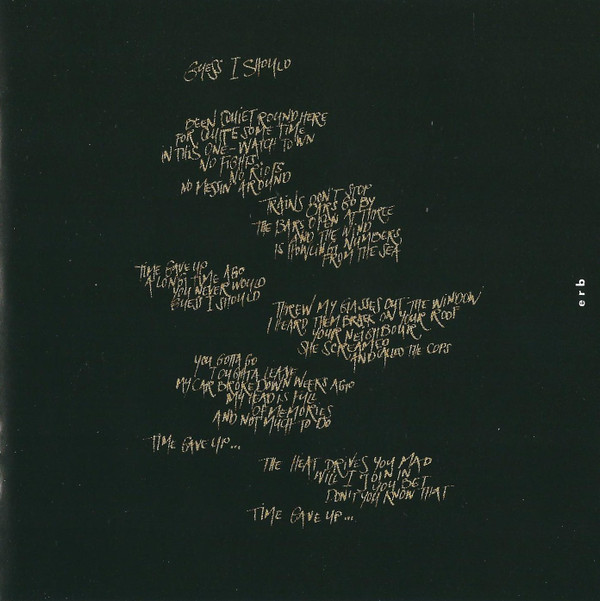 GUESS I SHOULD
BEEN QUIET ROUND HERE
FOR QUITE SOME TIME
IN THIS ONE-WATCH TOWN
NO FIGHTS,
NO RIOTS
NO MESSIN' AROUND
TRAINS DON'T STOP
CARS GO BY
THE BARS OPEN AT THREE
AND THE WIND
IS HOWLING NUMBERS
FROM THE SEA
TIME GAVE UP
A LONG TIME AGO
YOU NEVER WOULD
GUESS I SHOULD
THREW MY GLASSES OUT THE WINDOW
I HEARD THEM BREAK ON YOUR ROOF
YOUR NEIGHBOUR,
SHE SCREAMED
AND CALLED THE COPS
YOU GOTTA GO
I OUGHTA LEAVE
MY CAR BROKE DOWN WEEKS AGO
MY HEAD IS FULL
OF MEMORIES
AND NOT MUCH TO DO
TIME GAVE UP...
THE HEAT DRIVES YOU MAD
WILL I JOIN IN
YOU BET
DON'T YOU KNOW THAT
TIME GAVE UP...
erb